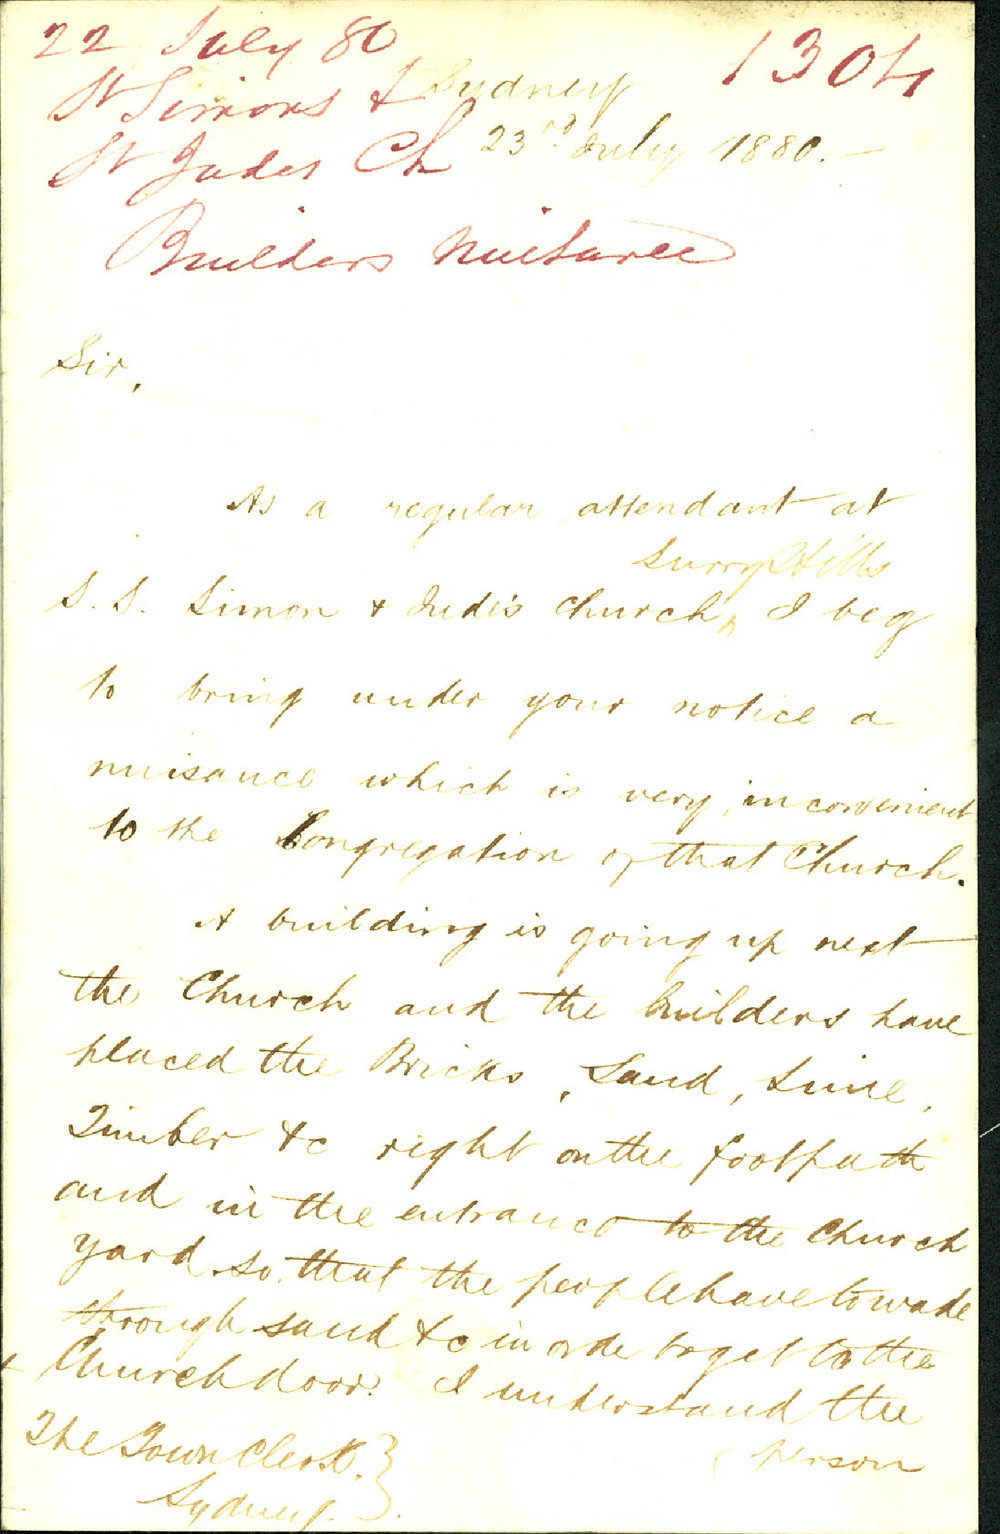 22 July 80
1304
St Simons &
St Judes Ch
Builders Nuisance
Sydney
23rd July 1880.
Sir,
As a regular attendant at
Surry Hills
S. S. Simon & Jude's Church, I beg
to bring under your notice a
nuisance which is very inconvenient
to the Congregation of that Church.
A building is going up next
the Church and the builders have
placed the Bricks, Sand, Lime,
Timber &c right on the footpath
and in the entrance to the Church
yard so that the people have to wade
through sand &c in orde to get to the
Church door. I understand the
(person
The Town Clerk.
Sydney.